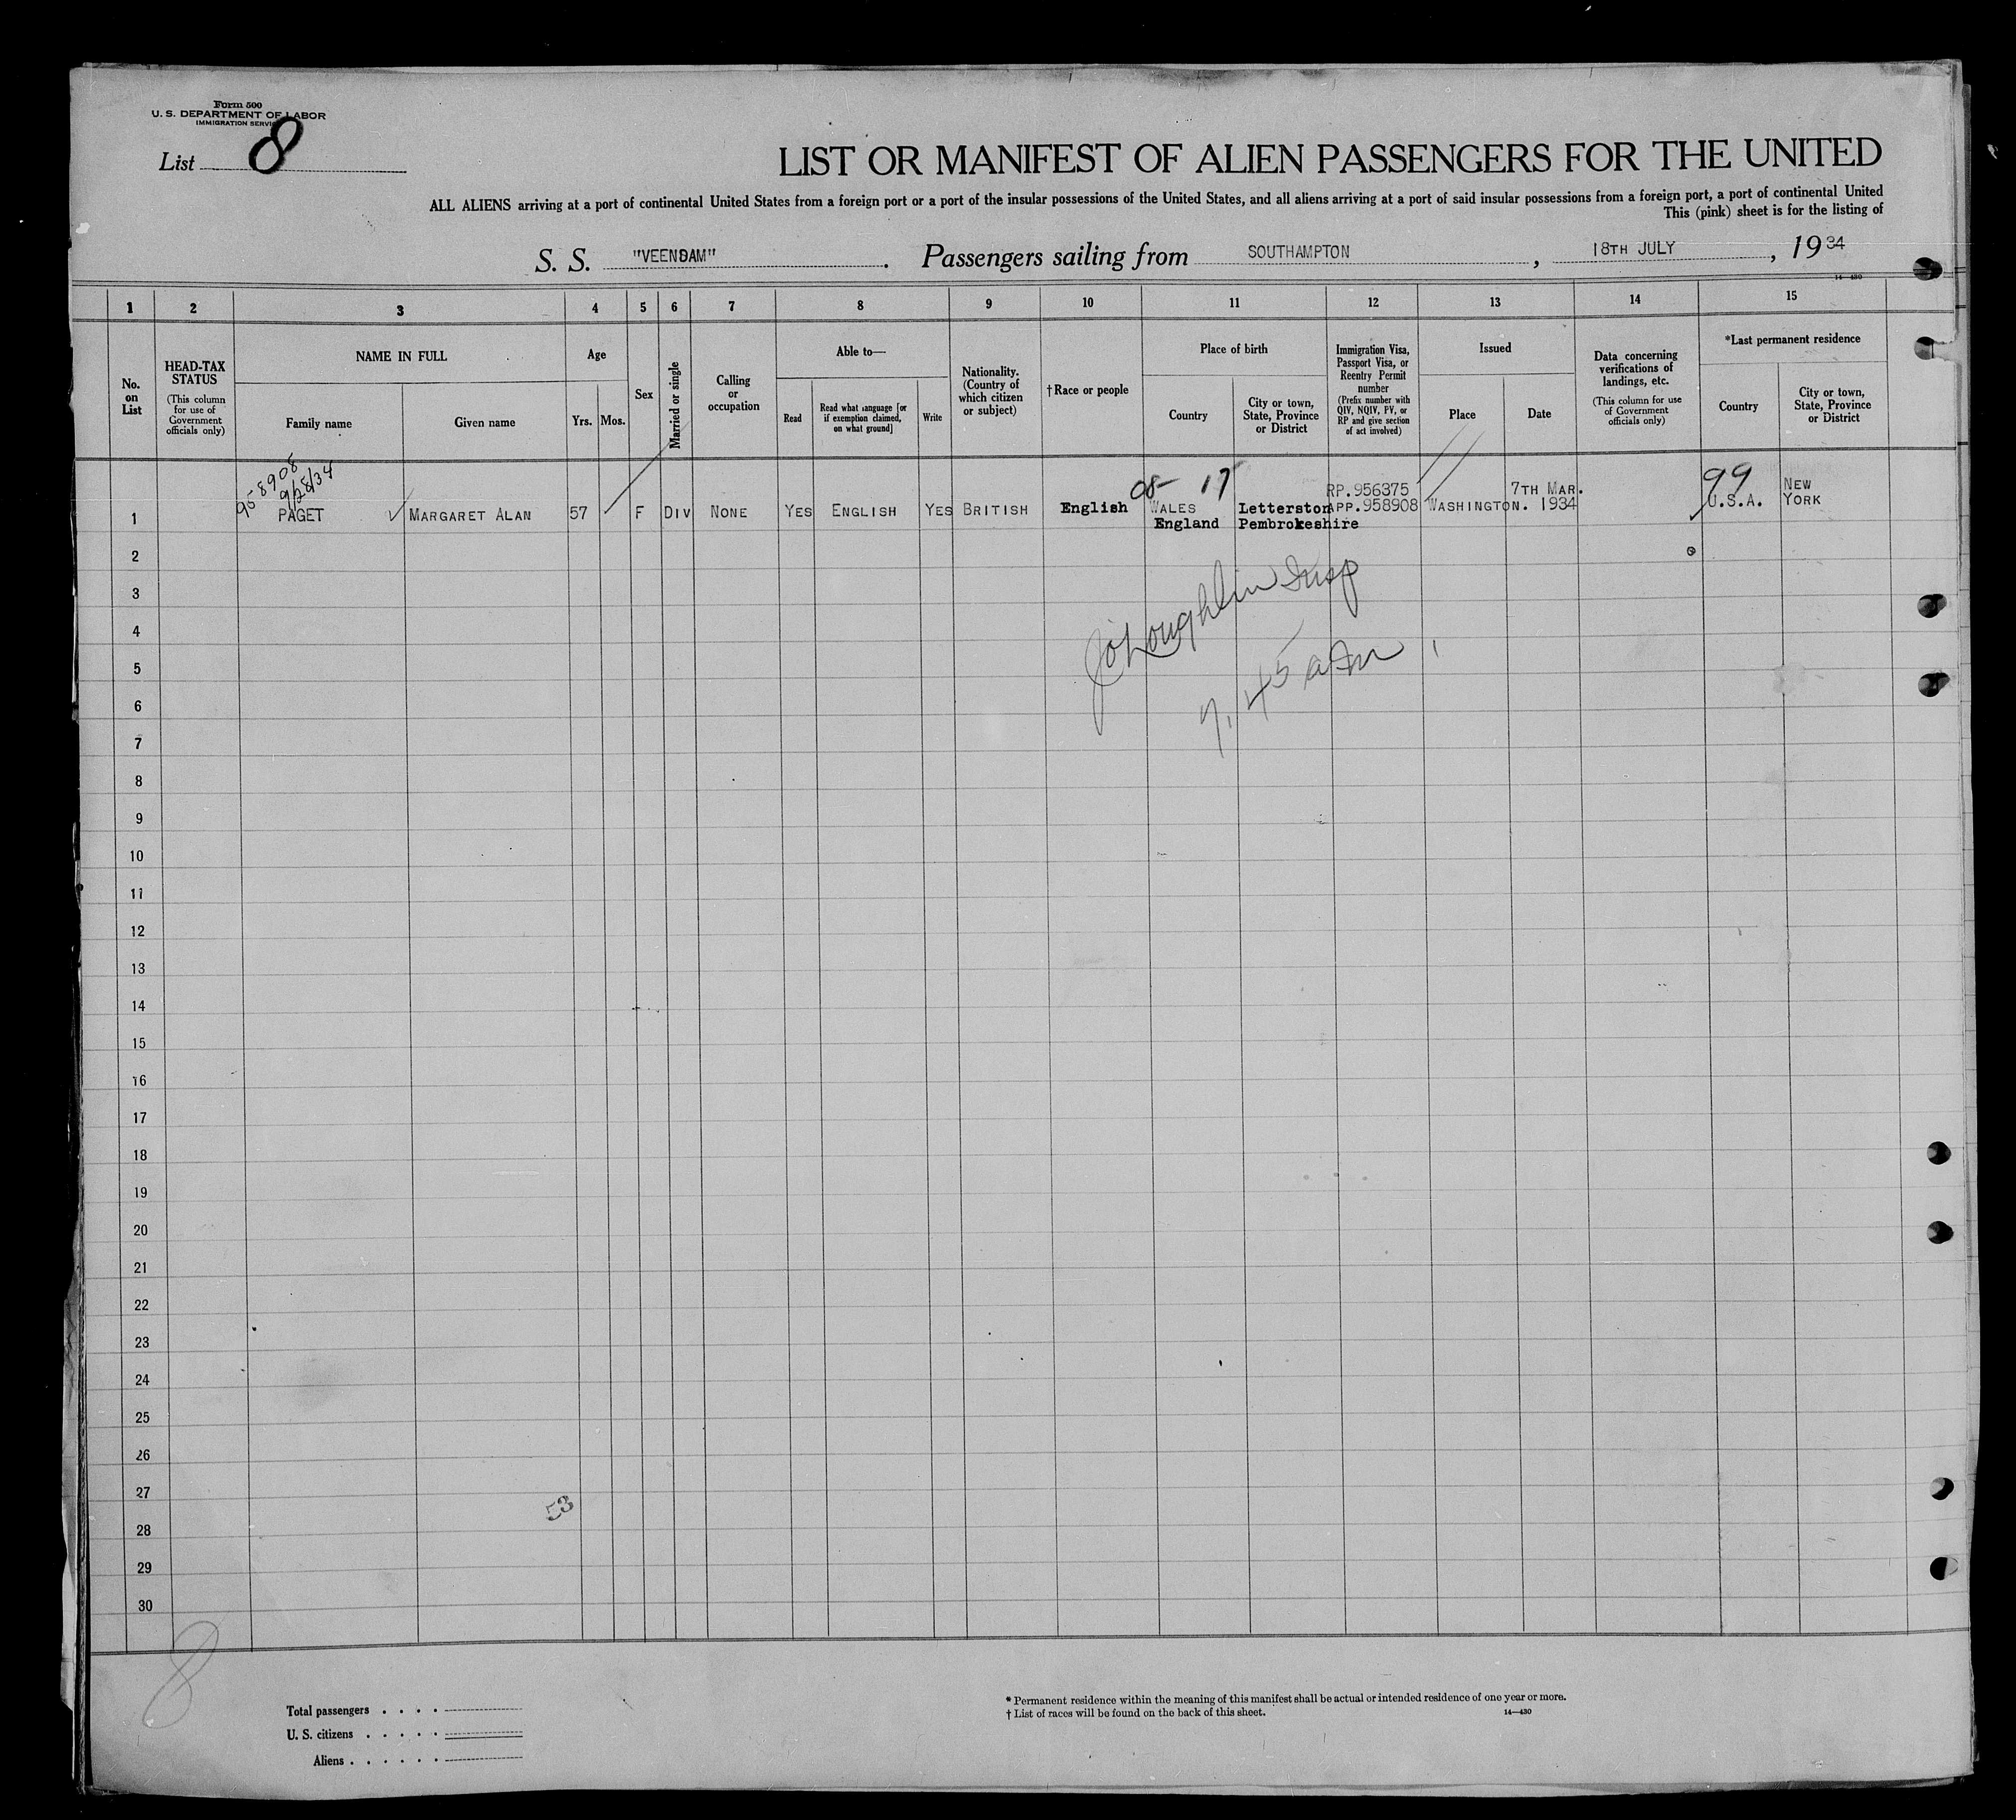 Form 500
U. S. DEPARTMENT OF LABOR
IMMIGRATION SERVICE
List 8
LIST OR MANIFEST OF ALIEN PASSENGERS FOR THE UNITED
ALL ALIENS arriving at a port of continental United States from a foreign port or a port of the insular possessions of the United States, and all aliens arriving at a port of said insular possessions from a foreign port, a port of continental United
This (pink) sheet is for the listing of
S. S. "VEENDAM". Passengers sailing from SOUTHAMPTON, 18TH JULY, 1934
14—430
1 2 3 4 5 6 7 8 9 10 11 12 13 14 15
No. on List
HEAD-TAX STATUS
(This column for use of Government officials only)
NAME IN FULL
Family name
Given name
Age
Yrs.
Mos.
Sex
Married or single
Calling or occupation
Able to—
Read
Read what language [or if exemption claimed, on what ground]
Write
Nationality. (Country of which citizen or subject)
†Race or people
Place of birth
Country
City or town, State, Province or District
Immigration Visa, Passport Visa, or Reentry Permit number
(Prefix number with QIV, NQIV, PV, or RP and give section of act involved)
Issued
Place
Date
Data concerning verifications of landings, etc.
(This column for use of Government officials only)
*Last permanent residence
Country
City or town, State, Province or District
958908
9/28/34
08- 17
99
RP.956375 7TH MAR. NEW
1 PAGET MARGARET ALAN 57 F DIV NONE YES ENGLISH YES BRITISH English WALES Letterston APP.958908 WASHINGTON. 1934 U.S.A. YORK
England Pembrokeshire
2
3
4
5
6
7
8
9
10
11
12
13
14
15
16
17
18
19
20
21
22
23
24
25
26
27
28
29
30
JO'Loughlin Insp
7.45 am
53
8
Total passengers . . . .
U. S. citizens . . . . .
Aliens . . . . . .
* Permanent residence within the meaning of this manifest shall be actual or intended residence of one year or more.
† List of races will be found on the back of this sheet.
14—430